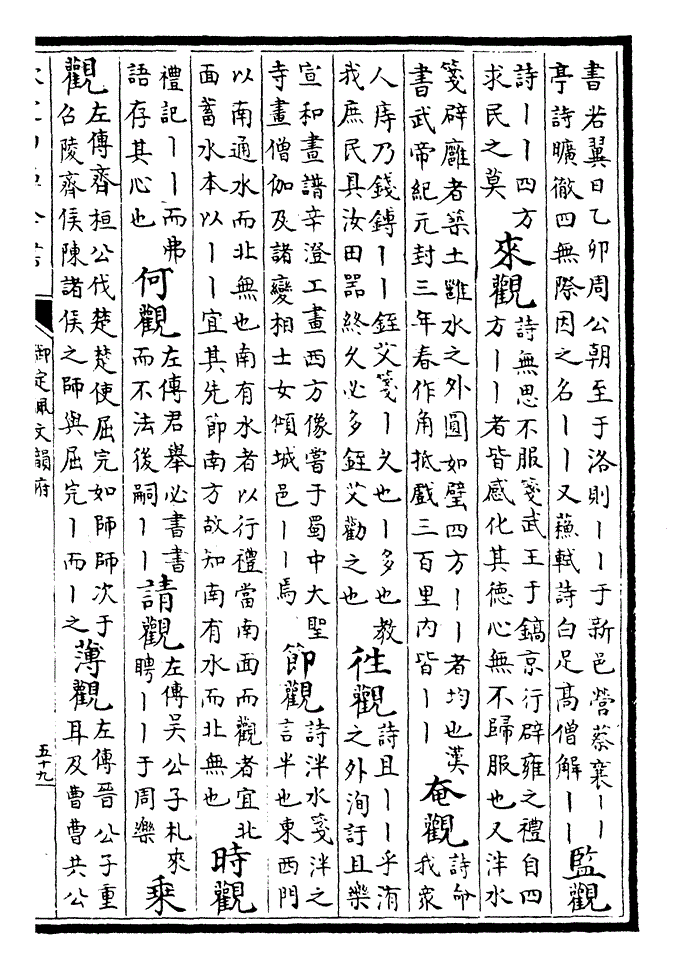 書若翼日乙卯周公朝至于洛則丨丨于新邑營蔡襄丨丨
亭詩曠徹四無際因之名丨丨又蘇軾詩白足高僧解丨丨
監觀
詩丨丨四方
求民之莫
來觀
詩無思不服箋武王于鎬京行辟雍之禮自四
方丨丨者皆感化其德心無不歸服也又泮水
箋辟廱者築土雝水之外圓如璧四方丨丨者均也漢
書武帝紀元封三年春作角抵戲三百里內皆丨丨
奄觀
詩命
我衆
人庤乃錢鎛丨丨銍艾箋丨乆也丨多也教
我庶民具汝田器終久必多銍艾勸之也
徃觀
詩且丨丨乎洧
之外洵訏且樂
宣和畫譜辛澄工畫西方像嘗于蜀中大聖
寺畫僧伽及諸變相士女傾城邑丨丨焉
節觀
詩泮水箋泮之
言半也東西門
以南通水而北無也南有水者以行禮當南面而觀者宜北
面蓄水本以丨丨宜其先節南方故知南有水而北無也
時觀
禮記丨丨而弗
語存其心也
何觀
左傳君舉必書書
而不法後嗣丨丨
請觀
左傳吳公子札來
聘丨丨于周樂
乘
觀
左傳齊桓公伐楚楚使屈完如師師次于
召陵齊侯陳諸侯之師與屈完丨而丨之
薄觀
左傳晉公子重
耳及曹曹共公
御定佩文韻府
五十九